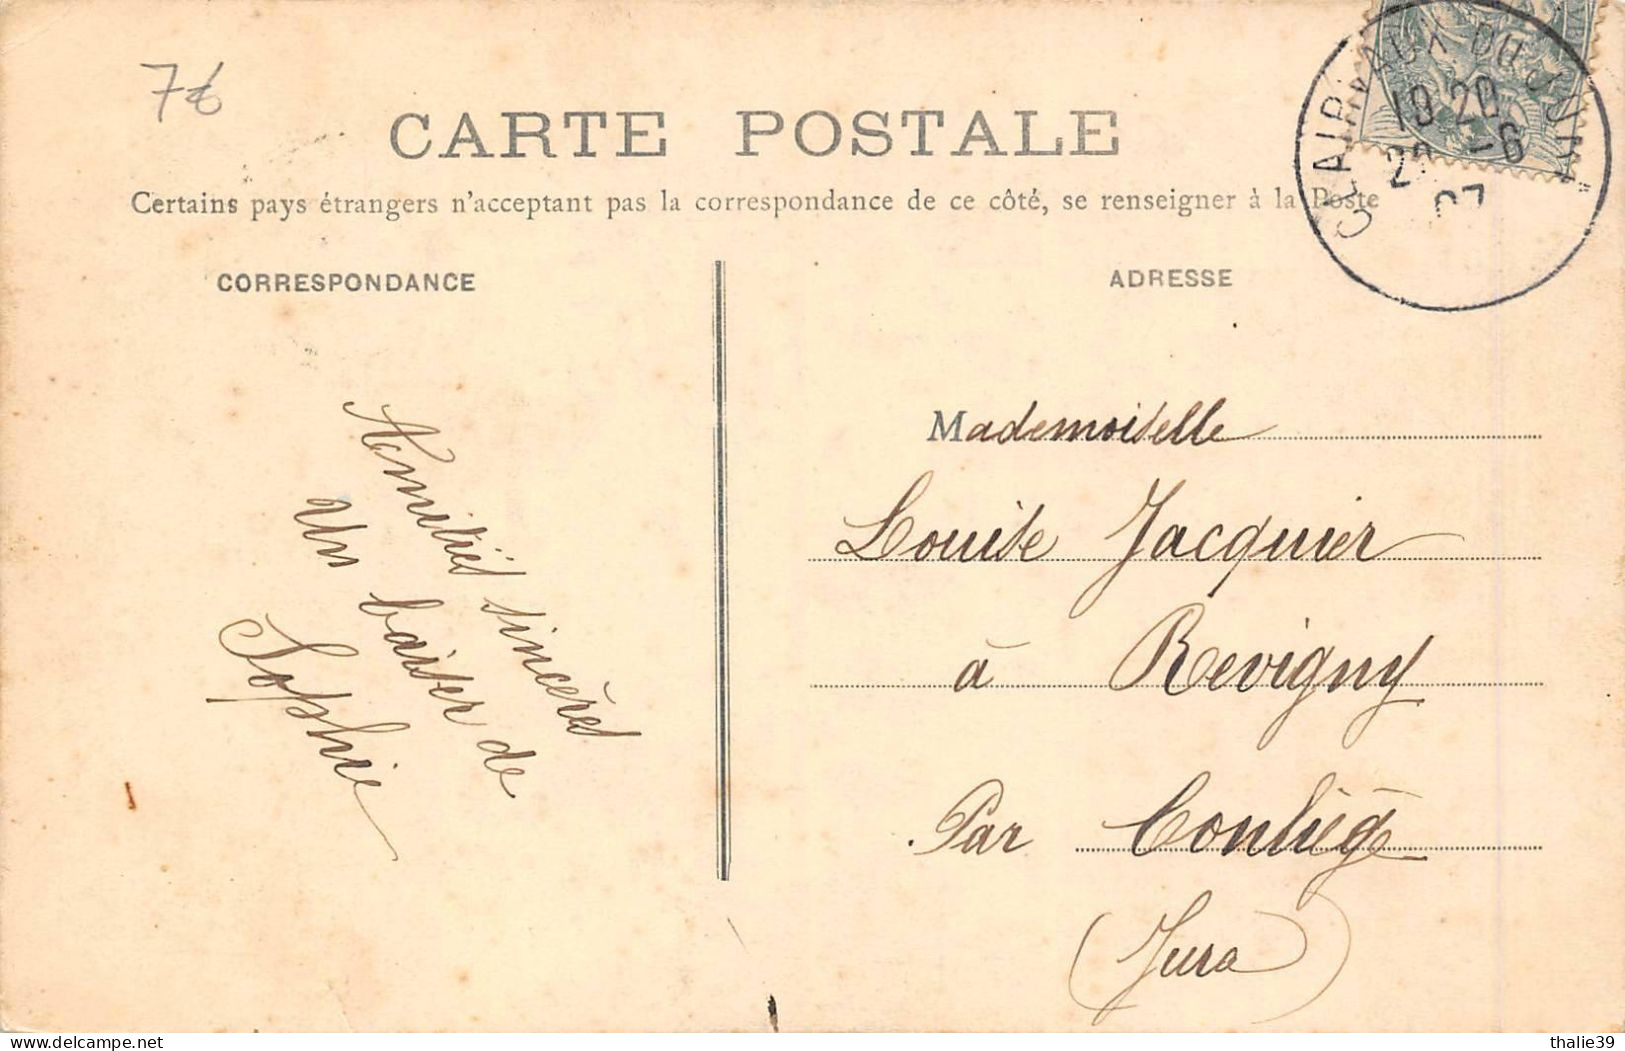 7€
CARTE POSTALE
Certains pays étrangers n'acceptant pas la correspondance de ce côté, se renseigner à la Poste
CORRESPONDANCE
ADRESSE
19 20
-6
07
Amitiés sincères
Un baiser de
Sophie
Mademoiselle
Louise Jacquier
à Revigny
Par Conliège
(Jura)
delcampe.net
thalie39